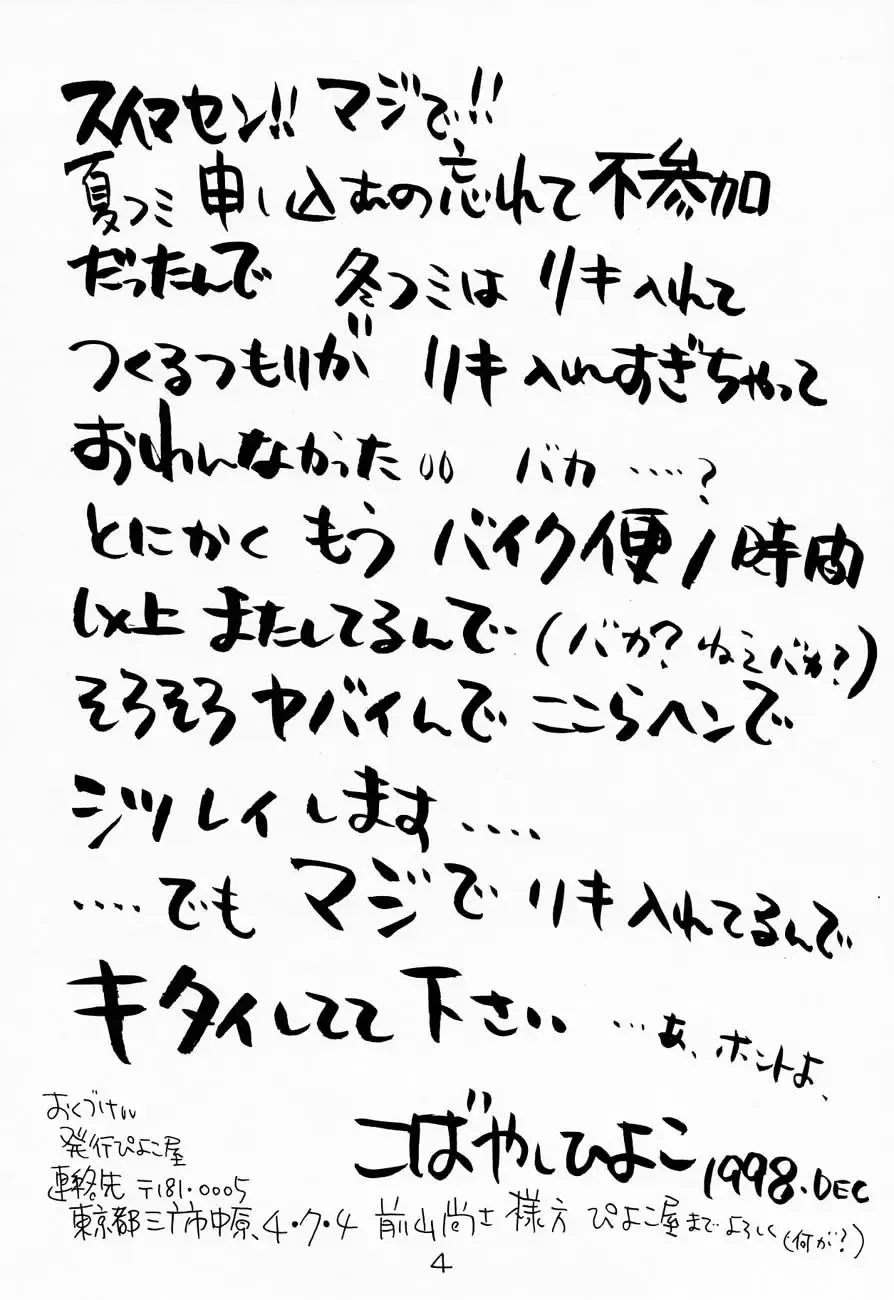 スイマセン!! マジで!!
夏コミ 申し込むの忘れて 不参加
だったんで 冬コミは リキ入れて
つくるつもりが リキ入れすぎちゃって
おわんなかった バカ ‥‥?
とにかく もう バイク便 1時間
以上 またしてるんで (バカ? ねえバカ?)
そろそろ ヤバイんで ここらヘンで
シツレイします ‥‥
‥‥でも マジで リキ 入れてるんで
キタイしてて 下さい …あ、ホントよ、
こばやしひよこ 1998.DEC
おくづけ
発行ぴよこ屋
連絡先 〒181.0005
東京都三鷹市中原、4・7・4 前山尚士 様方 ぴよこ屋まで よろしく (何が?)
4